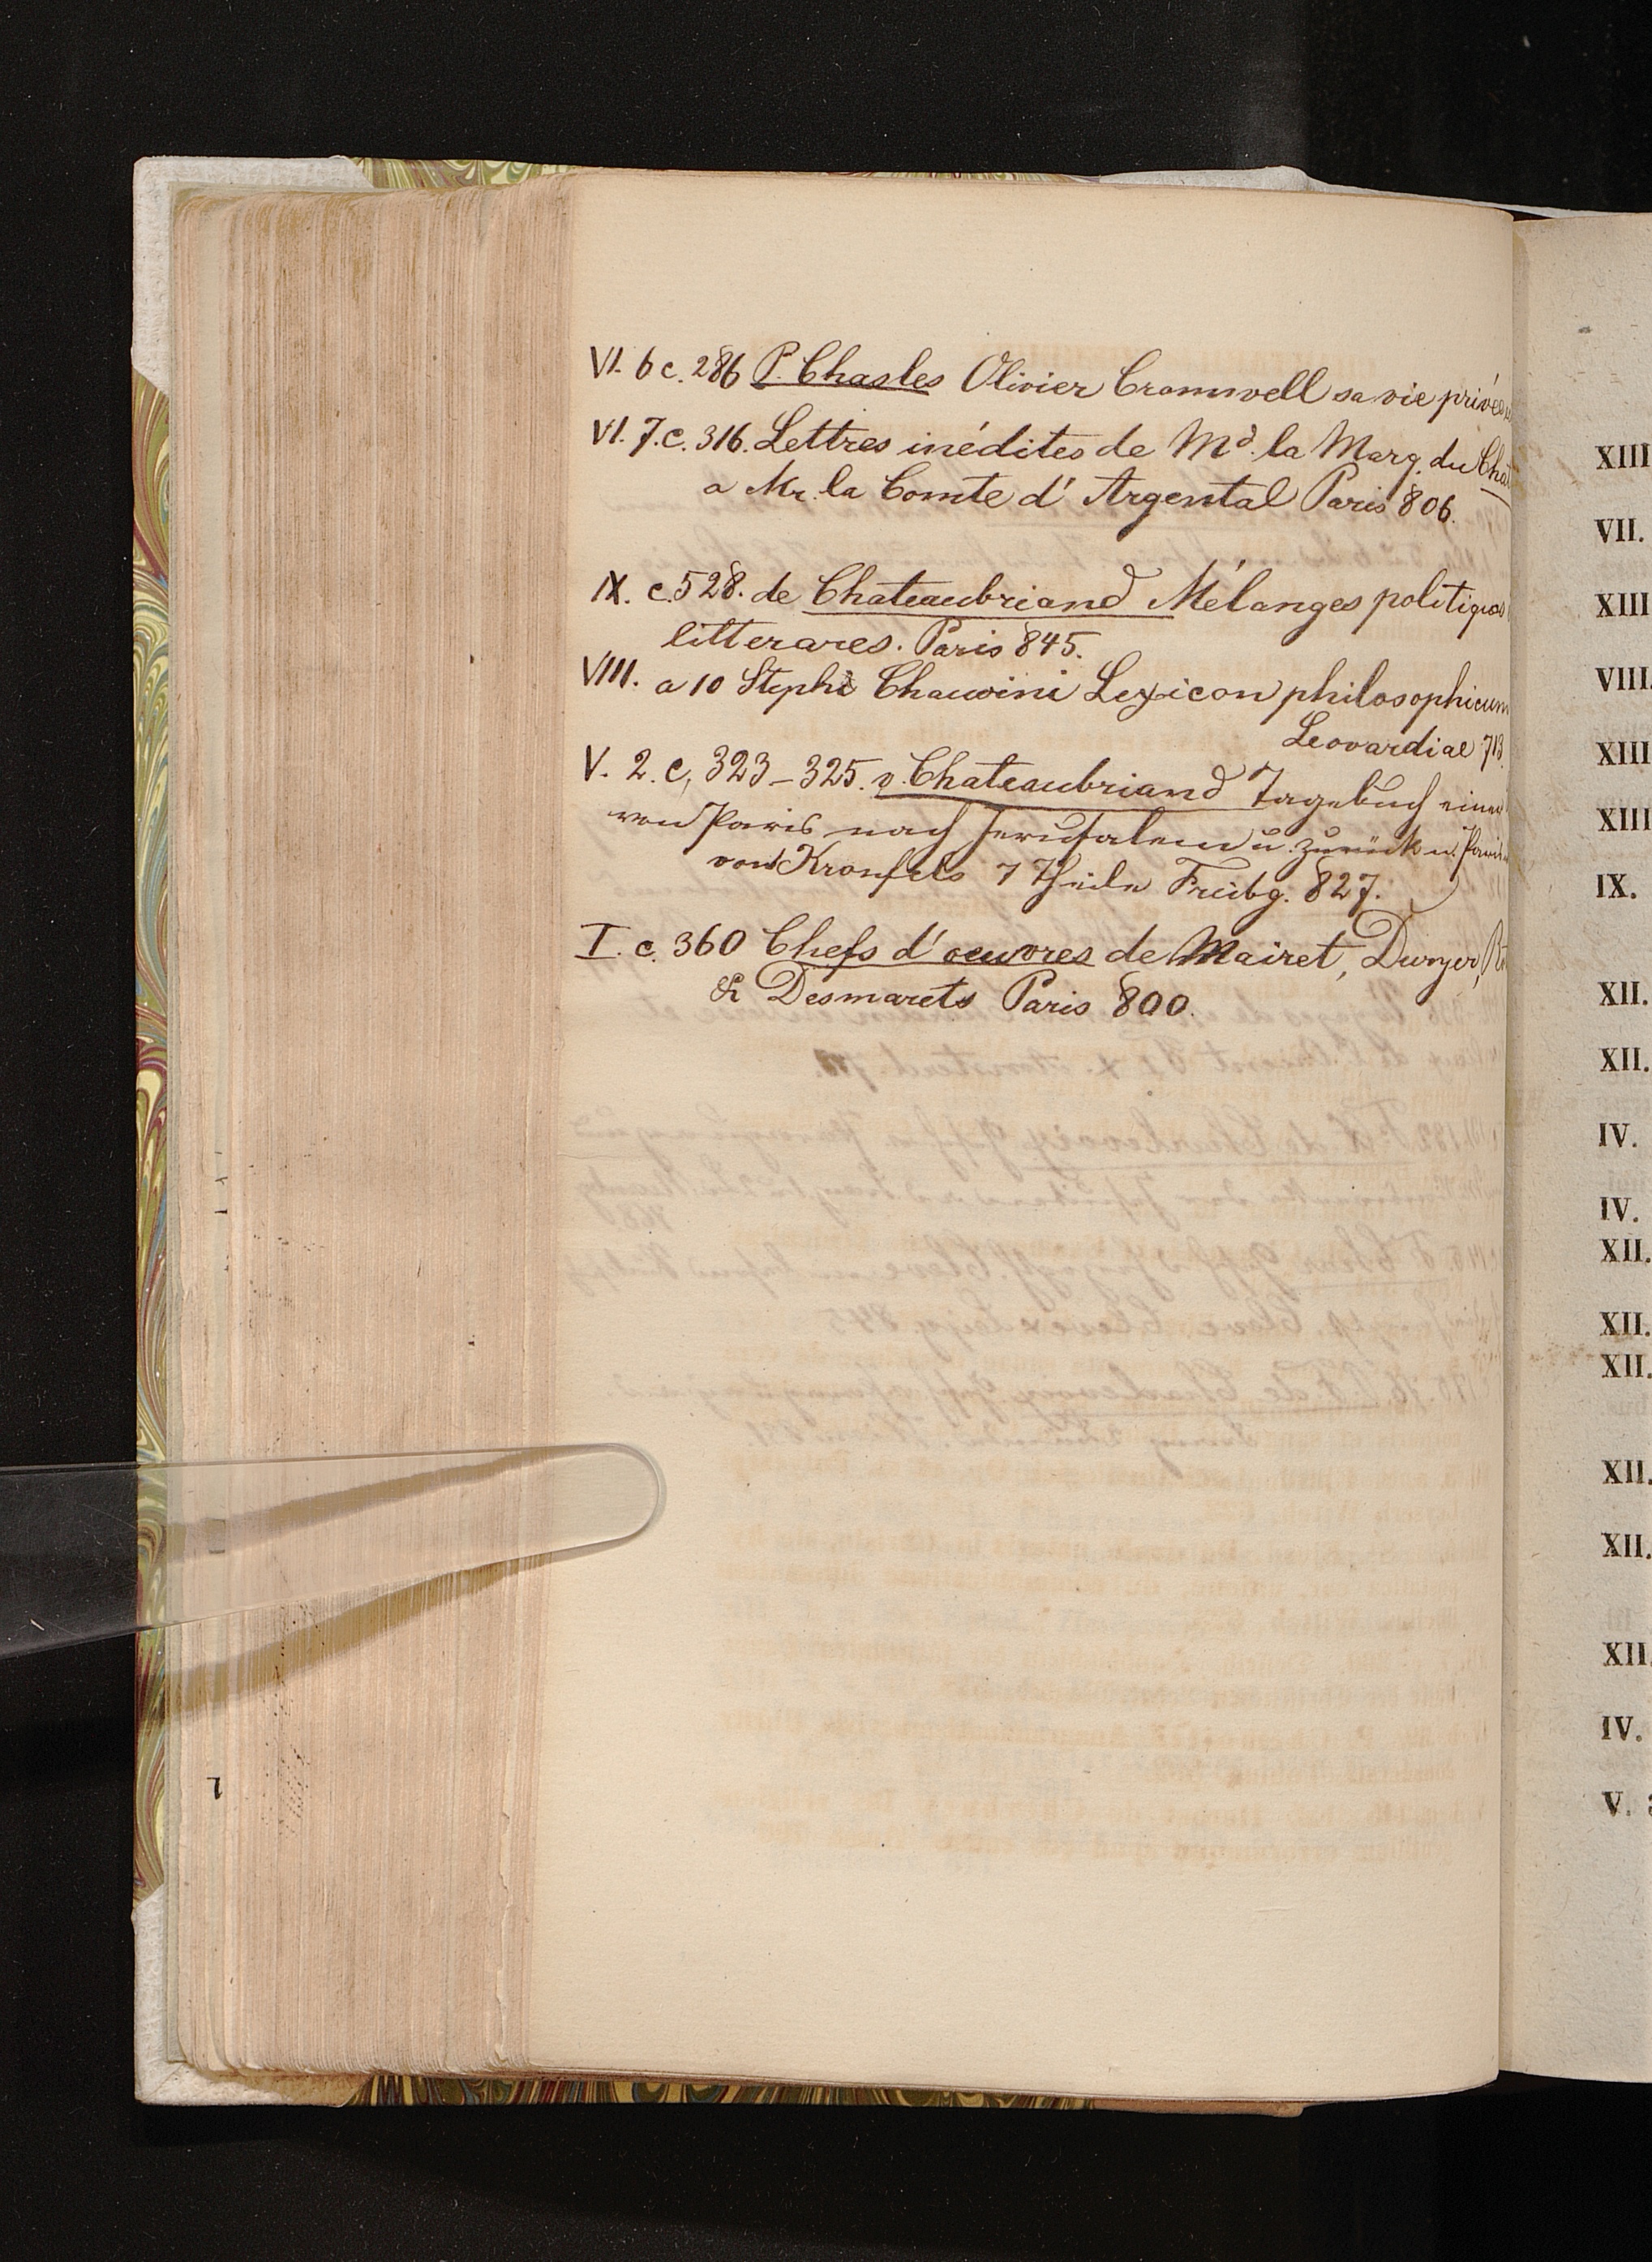 VI. 6 c. 286 P. Chasles Olivier Cromwell sa vie privée
VI. 7. c. 316. Lettres inédites de Md. la Marq. du Chat
a Mr. la Comte d' Argental Paris 806.
IX. c. 528. de Chateaubriand Mélanges politiques
litterares. Paris 845.
VIII. a 10 Stephi Chauvini Lexicon philosophicum
Leovardiae 713.
V. 2. c, 323-325. v. Chateaubriand Tagebuch einer
von Paris nach Jerusalem u. zurück n. Paris
von Kronfels 7 Theile Freibg. 827.
I. c. 360 Chefs d' oeuvres de Mairet, Duryer,
& Desmarets Paris 800.
XIII
VII.
XIII
VIII.
XIII
XIII
IX.
XII.
XII.
IV.
IV.
XII.
XII.
XII.
XII.
XII.
XII.
IV.
V.